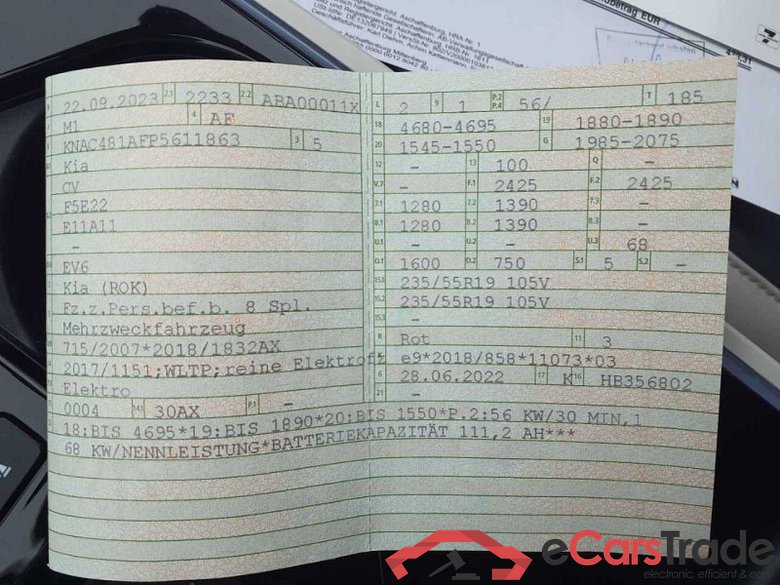 obetrag EUR
22.09.2023 2.1 2233 2.2 ABA00011X
M1 4 AF
KNAC481AFP5611863 3 5
Kia
CV
F5E22
E11A11
-
EV6
Kia (ROK)
Fz.z.Pers.bef.b. 8 Spl.
Mehrzweckfahrzeug
715/2007*2018/1832AX
2017/1151;WLTP;reine Elektrof
Elektro
0004 14.1 30AX P.1 -
L 2 9 1 P.2 P.4 56/ T 185
18 4680-4695 19 1880-1890
20 1545-1550 G 1985-2075
12 - 13 100 Q -
V.7 - F.1 2425 F.2 2425
7.1 1280 7.2 1390 7.3 -
8.1 1280 8.2 1390 8.3 -
U.1 - U.2 - U.3 68
O.1 1600 O.2 750 S.1 5 S.2 -
15.1 235/55R19 105V
15.2 235/55R19 105V
15.3 -
R Rot 11 3
K e9*2018/858*11073*03
6 28.06.2022 17 K 16 HB356802
21 -
18:BIS 4695*19:BIS 1890*20:BIS 1550*P.2:56 KW/30 MIN,1
68 KW/NENNLEISTUNG*BATTERIEKAPAZITÄT 111,2 AH***
eCarsTrade
electronic, efficient & e